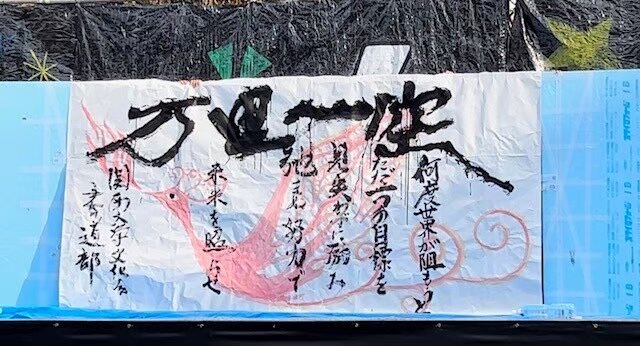 万里一空
何度世界が阻もうと
ただ一つの目標を
見失わずに励み
弛まぬ努力で
未来を照らせ
関西大学文化会
書道部